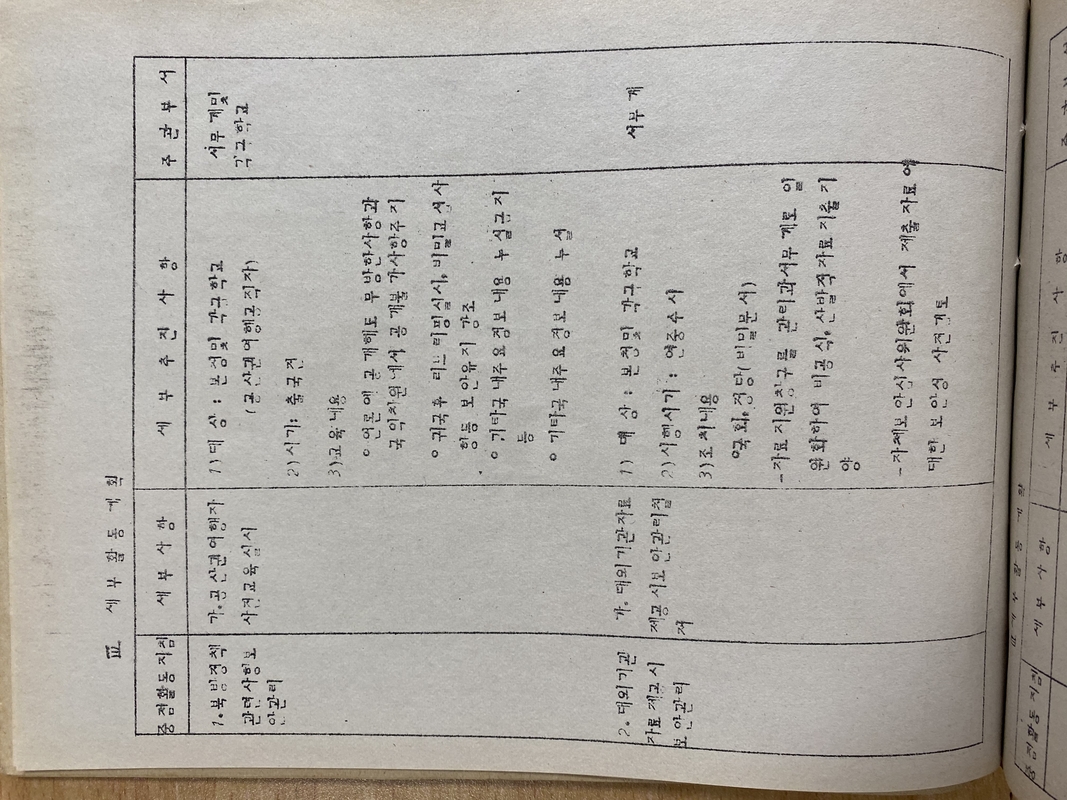 Ⅲ 세부 활동 계획
중점활동지침
세 부 사 항
세 부 추 진 사 항
주 관 부 서
1. 북방정책
관련사항보
안관리
가. 공산권여행자
사전교육실시
1) 대 상 : 본청및 각급학교
(공산권여행교직자)
2) 시기: 출국전
3) 교육내용
o 언론에 공개해도 무방한사항과
국익차원에서 공개불가사항주지
o 귀국후 디브리핑실시, 비밀고지사
항등 보안유지 강조
o 기타국내주요정보내용 누설금지
등
o 기타국내주요정보내용 누설
서무계및
각급학교
2. 대외기관
자료제공시
보안관리
가. 대외기관자료
제공시보안관리철
저
1) 대 상 : 본청및 각급학교
2) 시행시기 : 연중수시
3) 조치내용
국회, 정당(비밀문서)
- 자료지원창구를 관리과서무계로 일
원화하여 비공식, 산발적자료 지출지
양
- 자체보안심사위원회에서 제출자료에
대한 보안성 사전검토
서무계